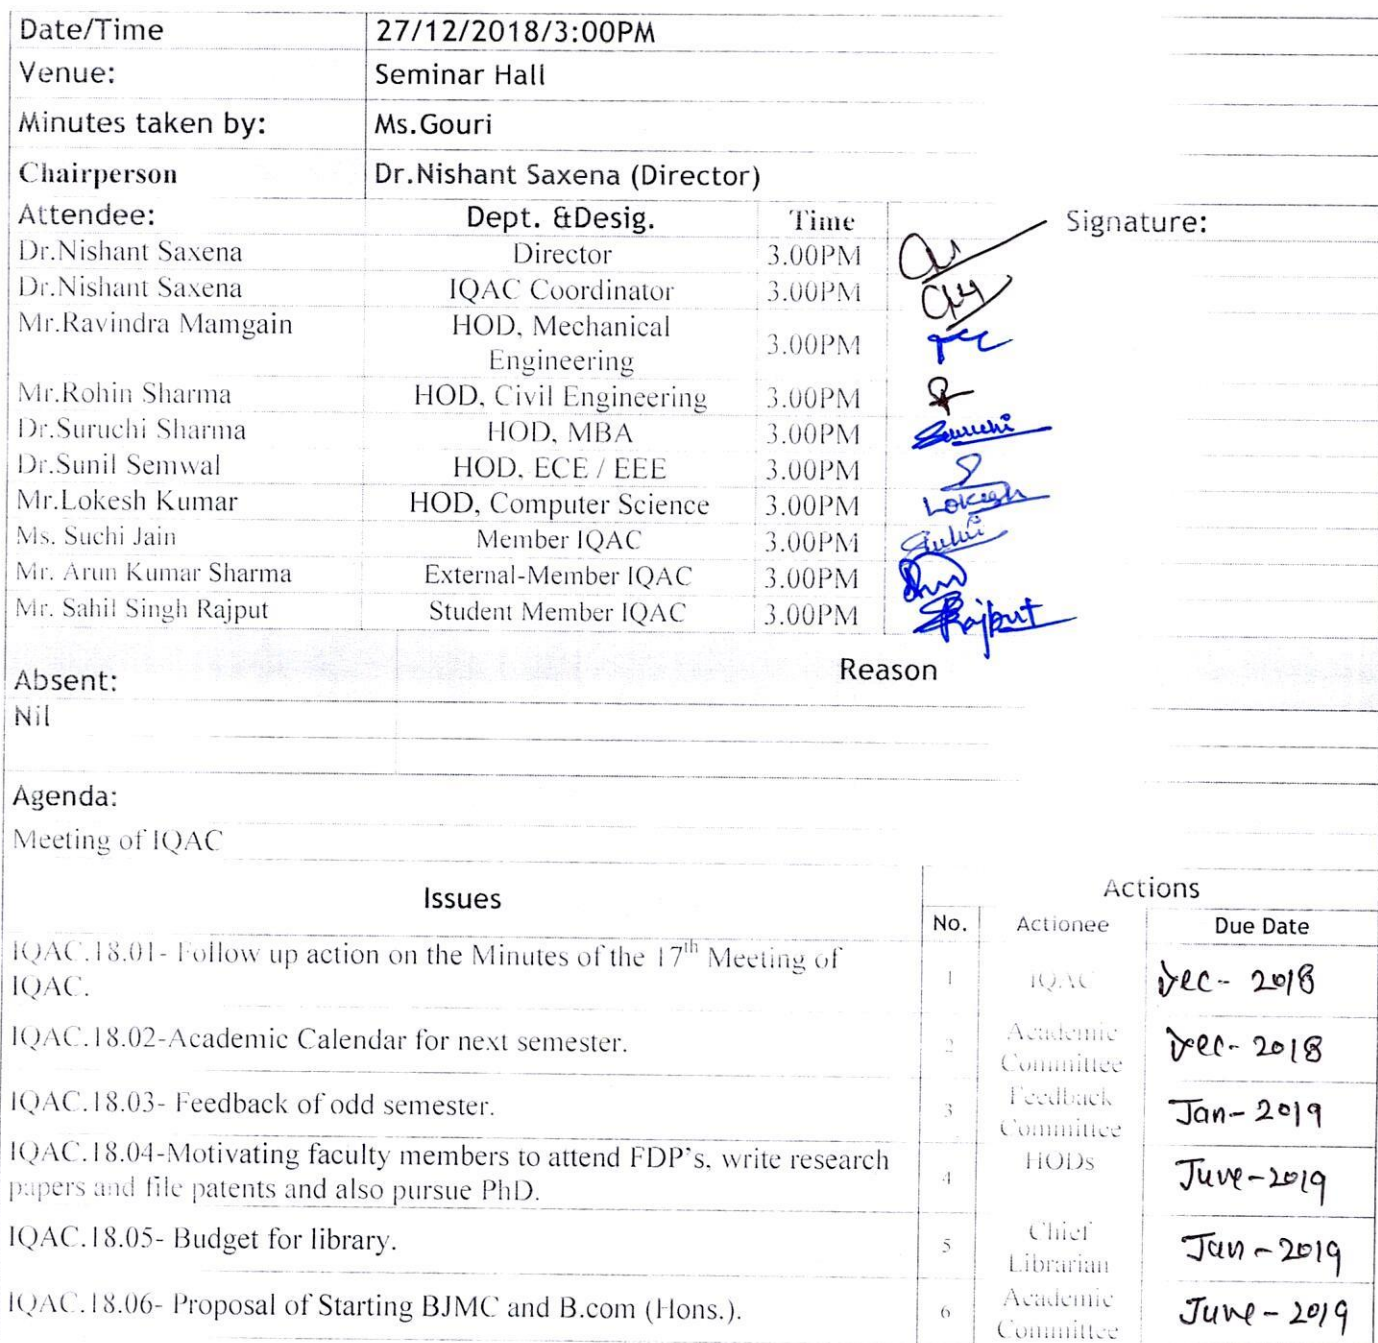 Date/Time 27/12/2018/3:00PM
Venue: Seminar Hall
Minutes taken by: Ms.Gouri
Chairperson Dr.Nishant Saxena (Director)
Attendee: Dept. &Desig. Time Signature:
Dr.Nishant Saxena Director 3.00PM
Dr.Nishant Saxena IQAC Coordinator 3.00PM
Mr.Ravindra Mamgain HOD, Mechanical
Engineering 3.00PM
Mr.Rohin Sharma HOD, Civil Engineering 3.00PM
Dr.Suruchi Sharma HOD, MBA 3.00PM Suruchi
Dr.Sunil Semwal HOD, ECE / EEE 3.00PM
Mr.Lokesh Kumar HOD, Computer Science 3.00PM Lokesh
Ms. Suchi Jain Member IQAC 3.00PM
Mr. Arun Kumar Sharma External-Member IQAC 3.00PM
Mr. Sahil Singh Rajput Student Member IQAC 3.00PM Rajput
Absent: Reason
Nil
Agenda:
Meeting of IQAC
Issues Actions
No. Actionee Due Date
IQAC.18.01- Follow up action on the Minutes of the 17th Meeting of
IQAC. 1 IQAC Dec- 2018
IQAC.18.02-Academic Calendar for next semester. 2 Academic
Committee Dec- 2018
IQAC.18.03- Feedback of odd semester. 3 Feedback
Committee Jan- 2019
IQAC.18.04-Motivating faculty members to attend FDP's, write research
papers and file patents and also pursue PhD. 4 HODs June-2019
IQAC.18.05- Budget for library. 5 Chief
Librarian Jan-2019
IQAC.18.06- Proposal of Starting BJMC and B.com (Hons.). 6 Academic
Committee June-2019